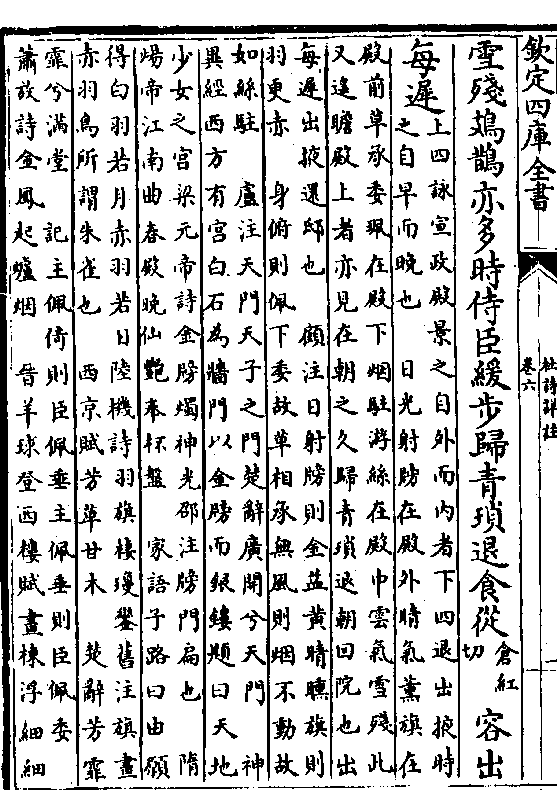 欽定四庫全書
杜詩詳註
卷六
雪殘鳷鵲亦多時侍臣緩步歸青瑣退食從倉紅切容出
每遲上四詠宣政殿景之自外而内者下四退出掖時
之自早而晚也　日光射牓在殿外晴氣薰旗在
殿前草承委珮在殿下烟駐游絲在殿巾雲氣雪殘此
又遥瞻殿上者亦見在朝之久歸青瑣退朝回院也出
每遲出掖還邸也　顧注日射牓則金益黄晴曛旗則
羽更赤　身俯則佩下委故草相承無風則烟不動故
如絲駐　盧注天門天子之門楚辭廣開兮天門　神
異經西方有宫白石為牆門以金牓而銀鏤題曰天地
少女之宫梁元帝詩金牓燭神光邵注牓門扁也　隋
煬帝江南曲春殿晚仙艷奉杯盤　家語子路曰由願
得白羽若月赤羽若日陸機詩羽旗棲瓊鑾舊注旗畫
赤羽鳥所謂朱雀也　西京賦芳草甘木　楚辭芳霏
霏兮滿堂　記主佩倚則臣佩垂主佩垂則臣佩委
蕭放詩金鳳起爐烟　晉羊球登西樓賦畫棟浮細細